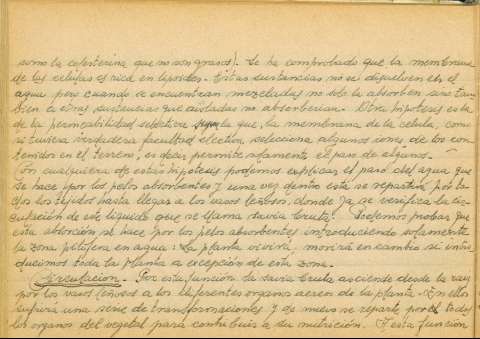 como la colesterina que no son grasas). Se ha comprobado que la membrana
de las células es rica en lipoides. Estas sustancias no se disuelven en el
agua pero cuando se encuentran mezcladas no solo la absorben sino tam-
bien a otras sustancias que aisladas no absorberian. Otra hipótesis es la
de la permeabilidad selectiva según la que, la membrana de la celula, como
si tuviera verdadera facultad electiva, selecciona algunos iones de los con-
tenidos en el terreno, es decir, permite solamente el paso de algunos.
Con cualquiera de estas hipótesis podemos explicar el paso del agua que
se hace por los pelos absorbentes y una vez dentro esta se reparte por to-
dos los tejidos hasta llegar a los vasos leñosos, donde ya se verifica la cir-
culación de este liquido que se llama savia bruta. Podemos probar que
esta absorción se hace por los pelos absorbentes introduciendo solamente
la zona pilifera en agua: La planta vivirá, morirá en cambio si intro-
ducimos toda la planta a excepción de esta zona.
Circulacion.- Por esta función la savia bruta asciende desde la raiz
por los vasos leñosos a los diferentes organos aereos de la planta. En ellos
sufrira una serie de transformaciones y de nuevo se reparte por todos
los organos del vegetal para contribuir a su nutrición. A esta función